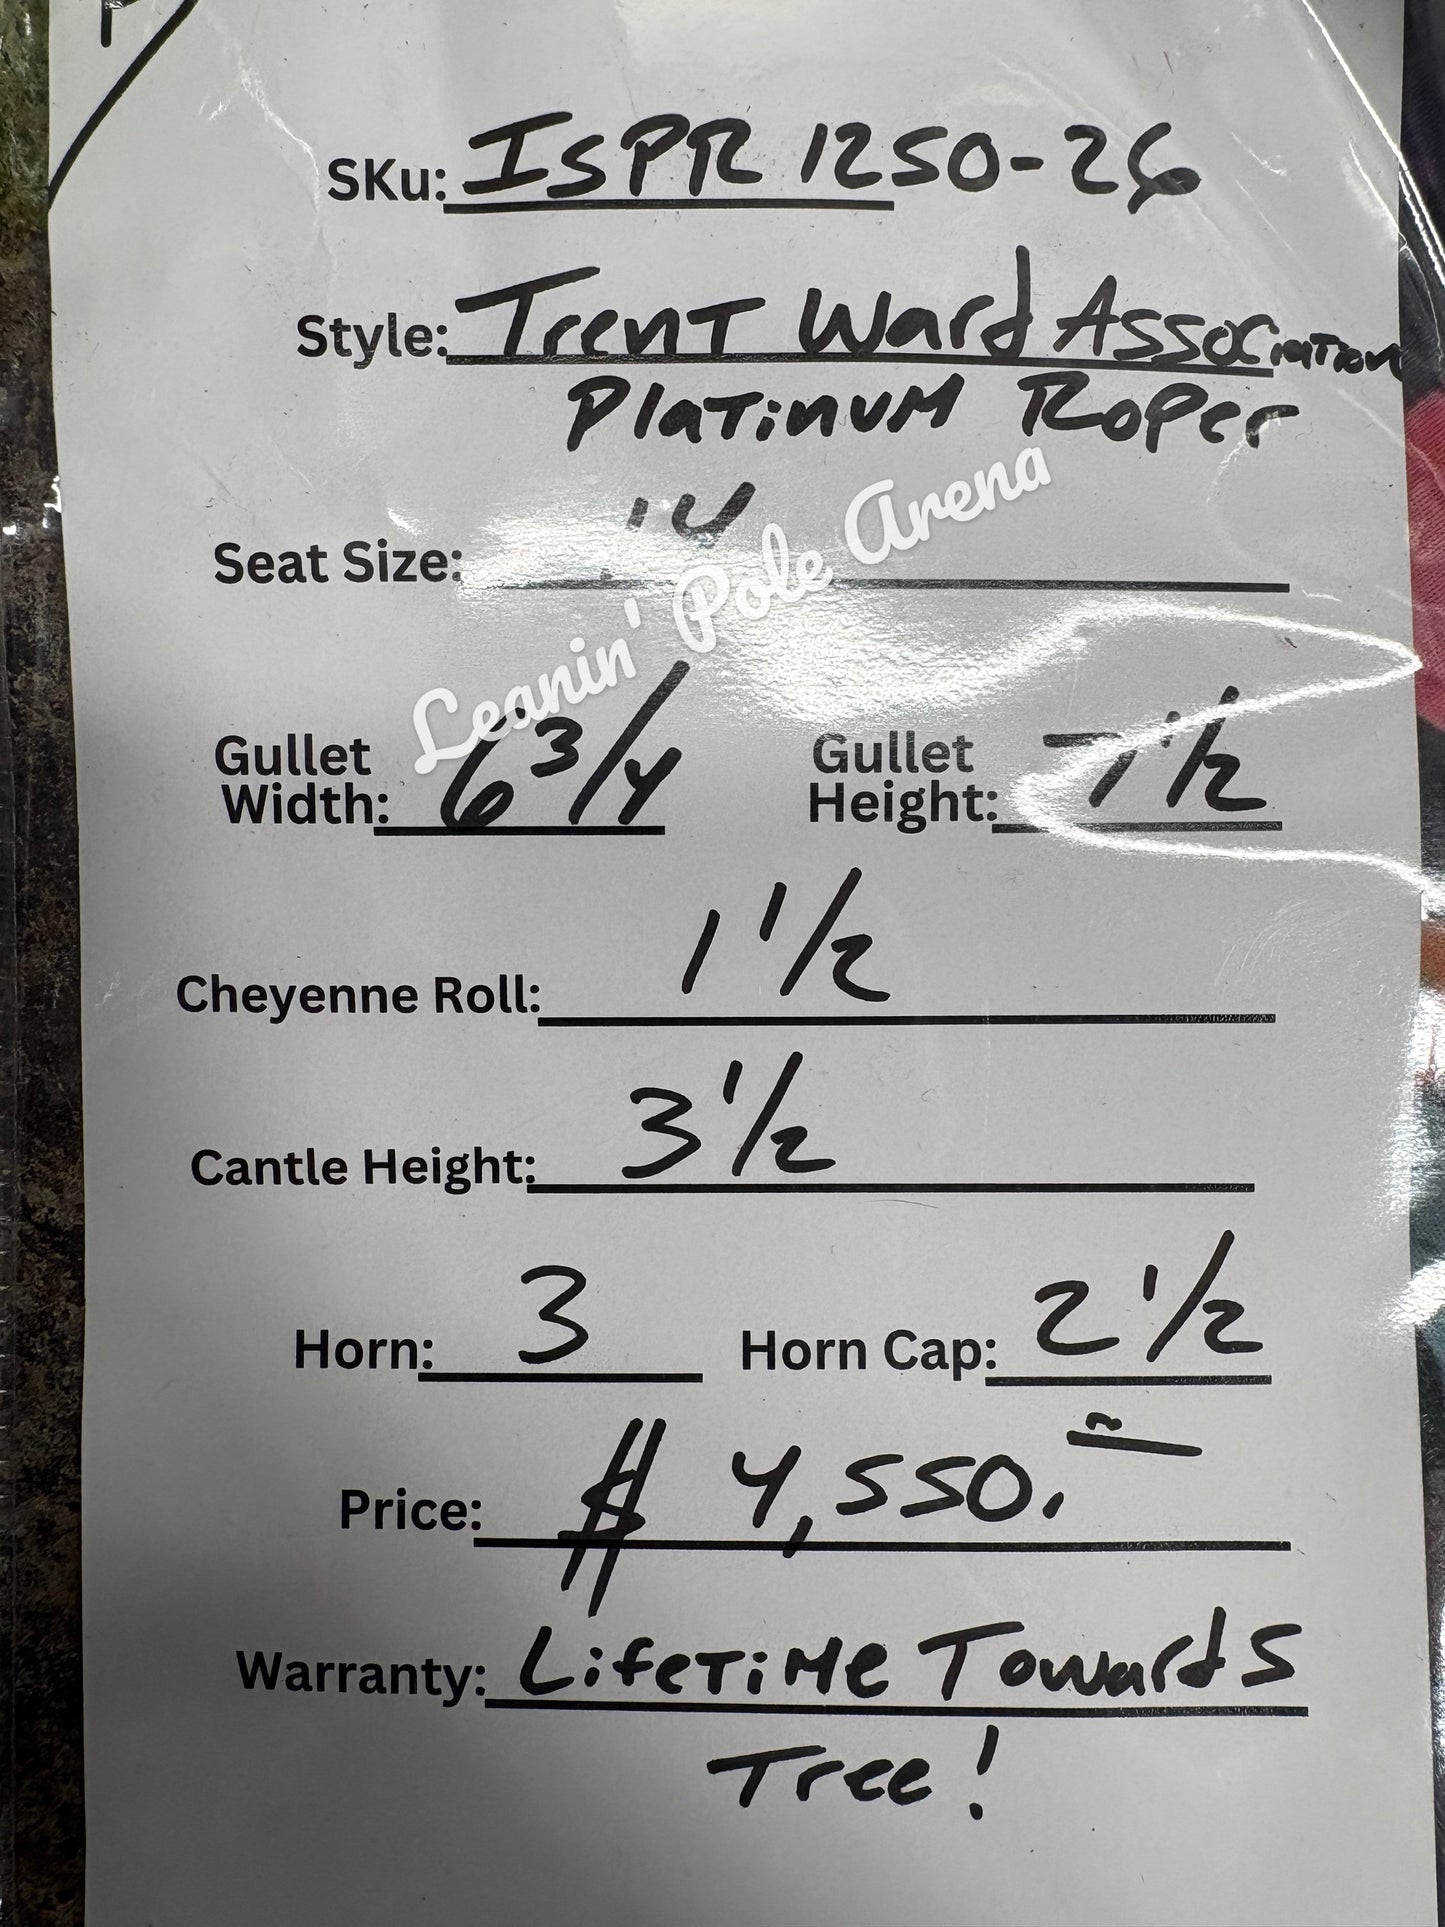 SKu: ISPR 1250-26
Style: Trent Ward Association
Platinum Roper
Seat Size: 14
Leanin' Pole Arena
Gullet Width: 6 3/4 Gullet Height: 7 1/2
Cheyenne Roll: 1 1/2
Cantle Height: 3 1/2
Horn: 3 Horn Cap: 2 1/2
Price: $ 4,550.
Warranty: Lifetime Towards
Tree!